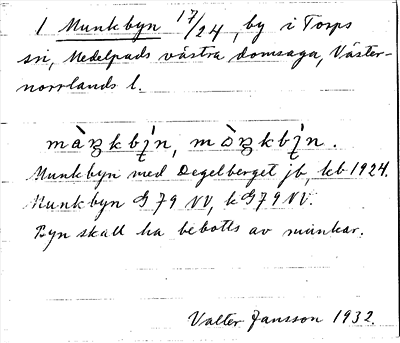 1 Munkbyn 17/24, by i Torps
sn, Medelpads västra domsaga, Väster-
norrlands l.
Munkbyn med Degelberget jb, kb 1924.
Munkbyn G 79 NV, k G 79 NV.
Byn skall ha bebotts av munkar.
Valter Jansson 1932.